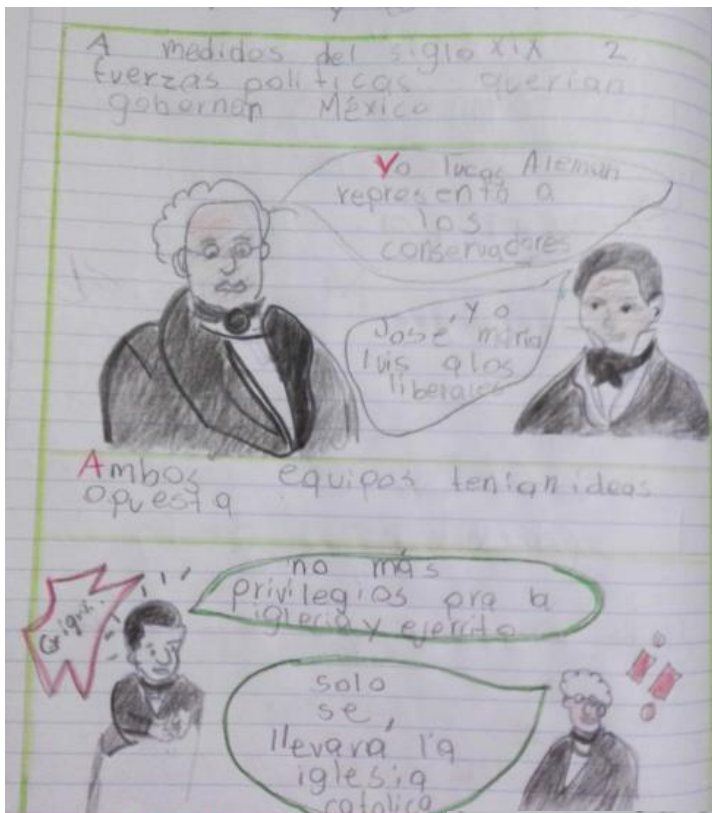 A medidos del siglo XIX 2
fuerzas politicas querian
gobernar México
Yo lucas Aleman
represento a
los
conservadores
yo
José maria
luis a los
liberales
Ambos equipos tenian ideas
opuesta
no más
privilegios pra la
iglecia y ejercito
solo
se,
llevara la
iglesia
catolica